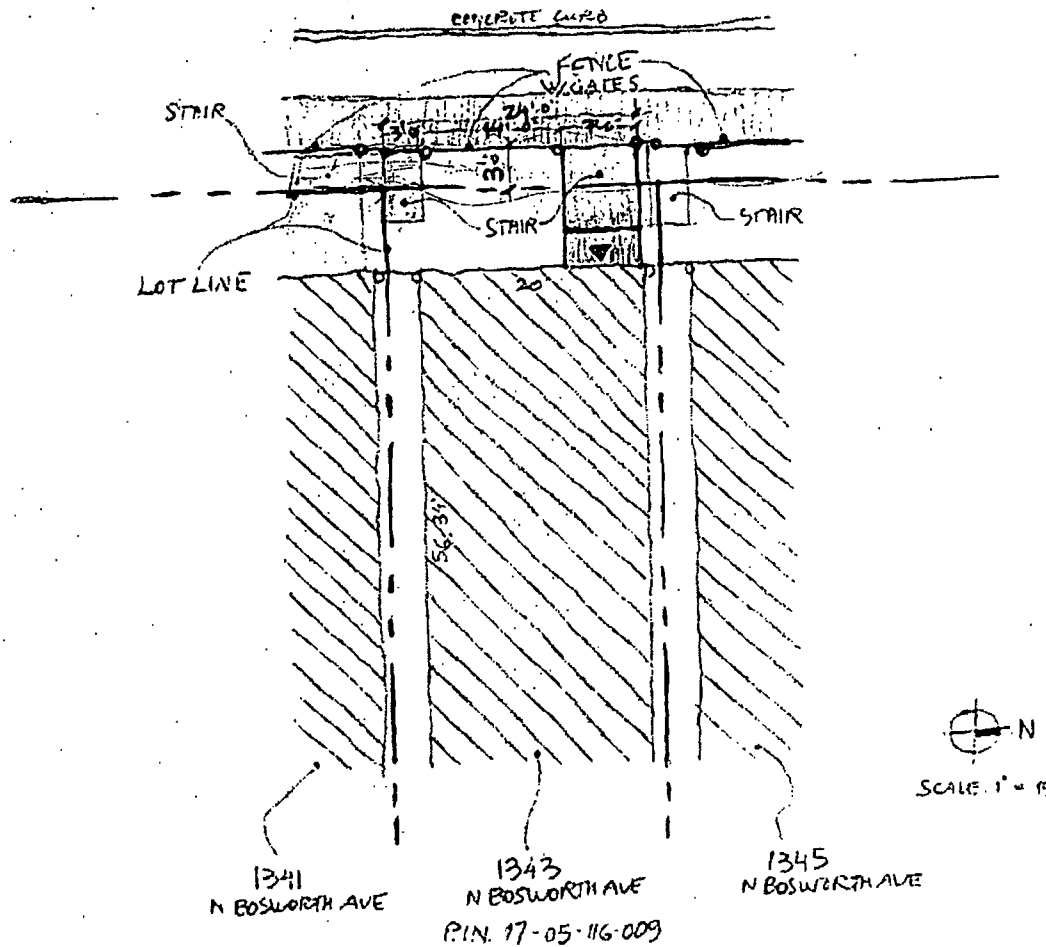 CONCRETE CURB
FENCE
W/GATES
STAIR
24'0"
3'0"
14'0"
3'0"
STAIR
STAIR
LOT LINE
20
56.34'
N
SCALE. 1" =
1341
N BOSWORTH AVE
1343
N BOSWORTH AVE
1345
N BOSWORTH AVE
P.I.N. 17-05-116-009